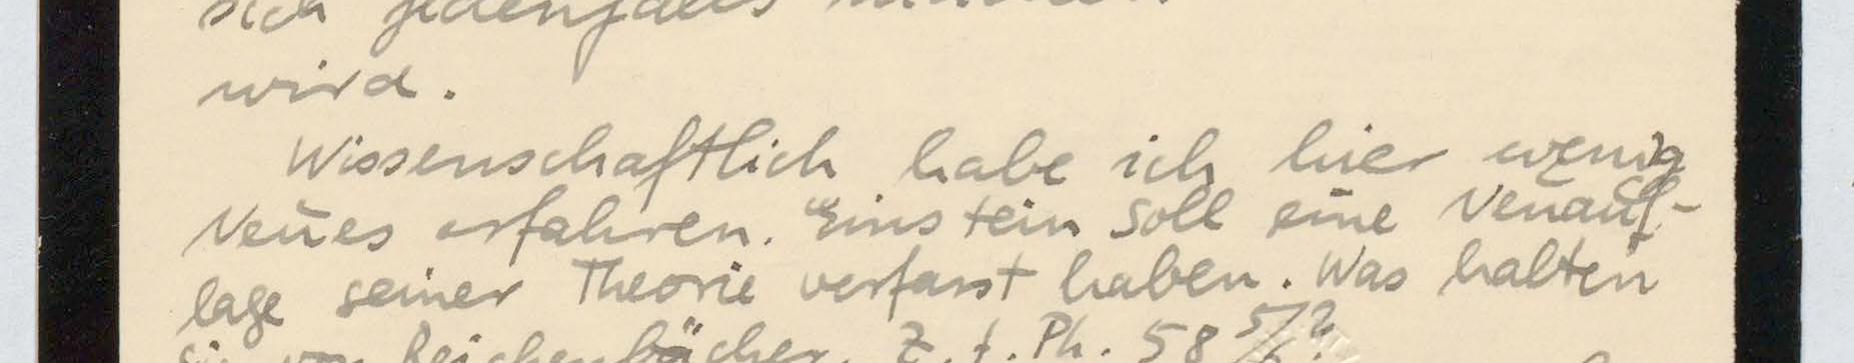 sich jedenfalls
wird.
Wissenschaftlich habe ich hier wenig
Neues erfahren. Einstein soll eine Neuauf-
lage seiner Theorie verfasst haben. Was halten
Sie von Reichenbächer, Z. f. Ph. 58 5/?